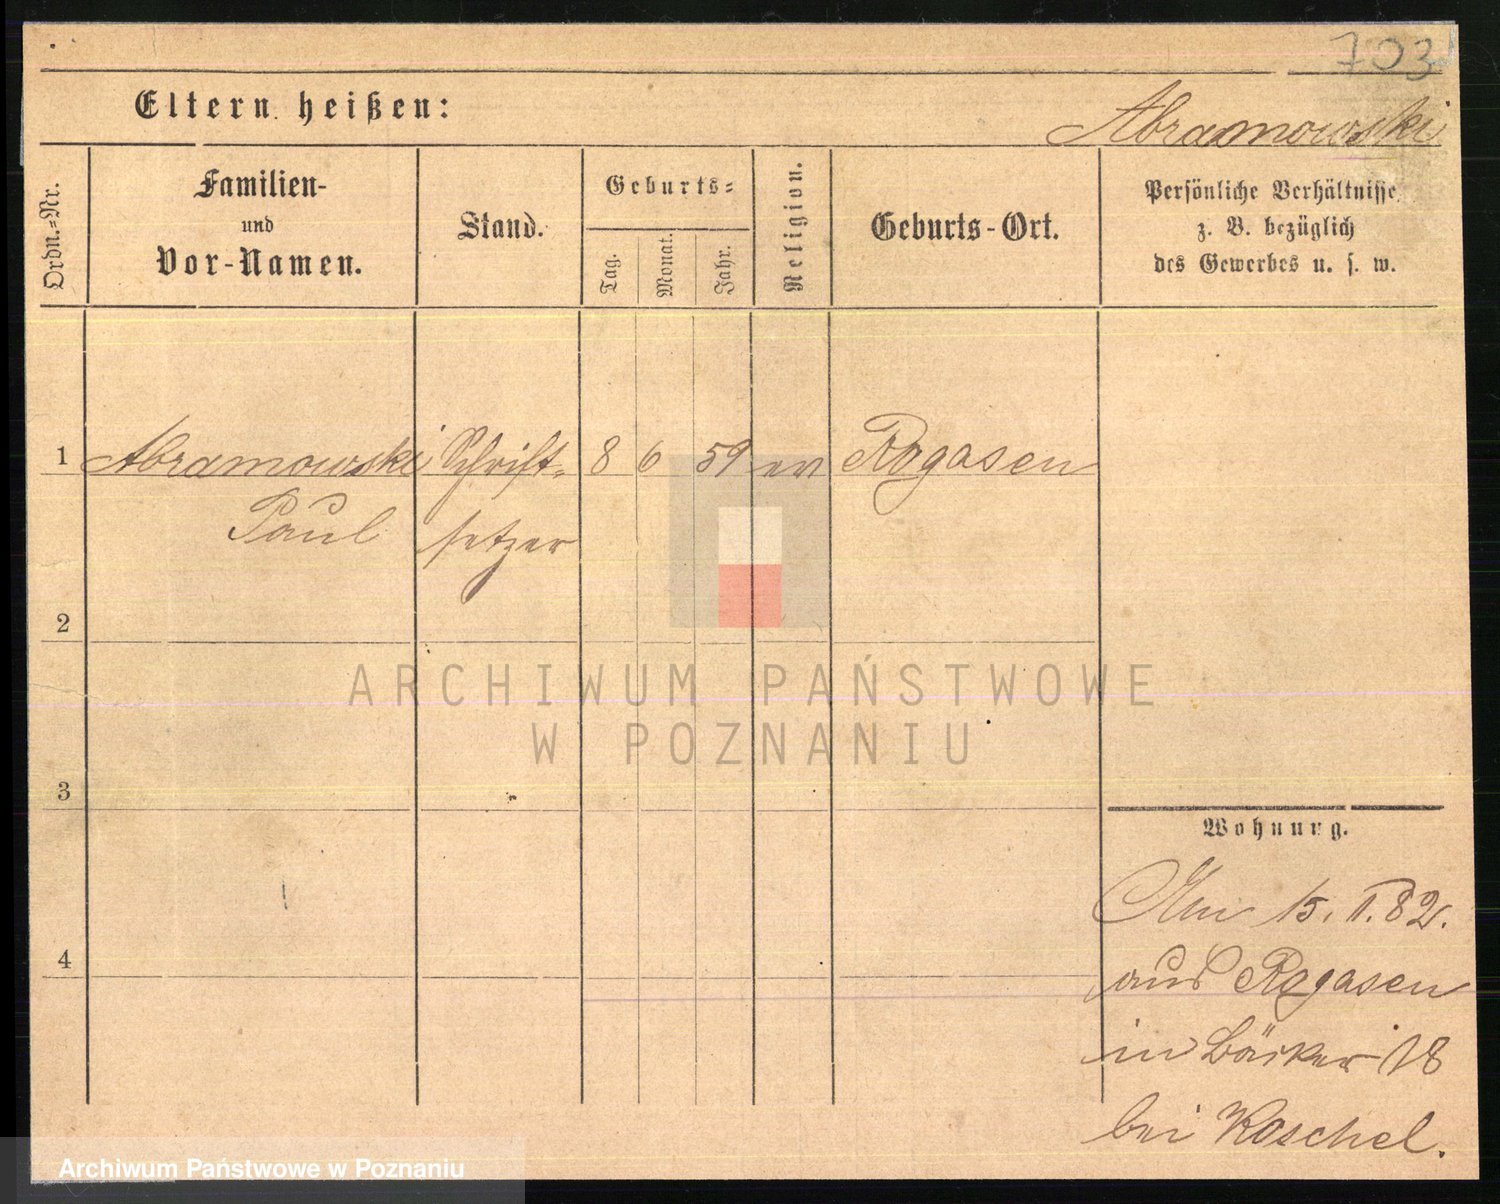 703
Eltern heißen:
Abramowski
Ordn.=Nr.
Familien-
und
Vor-Namen.
Stand.
Geburts=
Tag.
Monat.
Jahr.
Religion.
Geburts-Ort.
Persönliche Verhältnisse
z. B. bezüglich
des Gewerbes u. s. w.
1 Abramowski Schrift- 8 6 59 ev Rogasen
Paul setzer
2
ARCHIWUM PAŃSTWOWE
W POZNANIU
3
Wohnung.
Am 15. II. 82.
aus Rogasen
4
in Bäcker 18
bei Koschel.
Archiwum Państwowe w Poznaniu